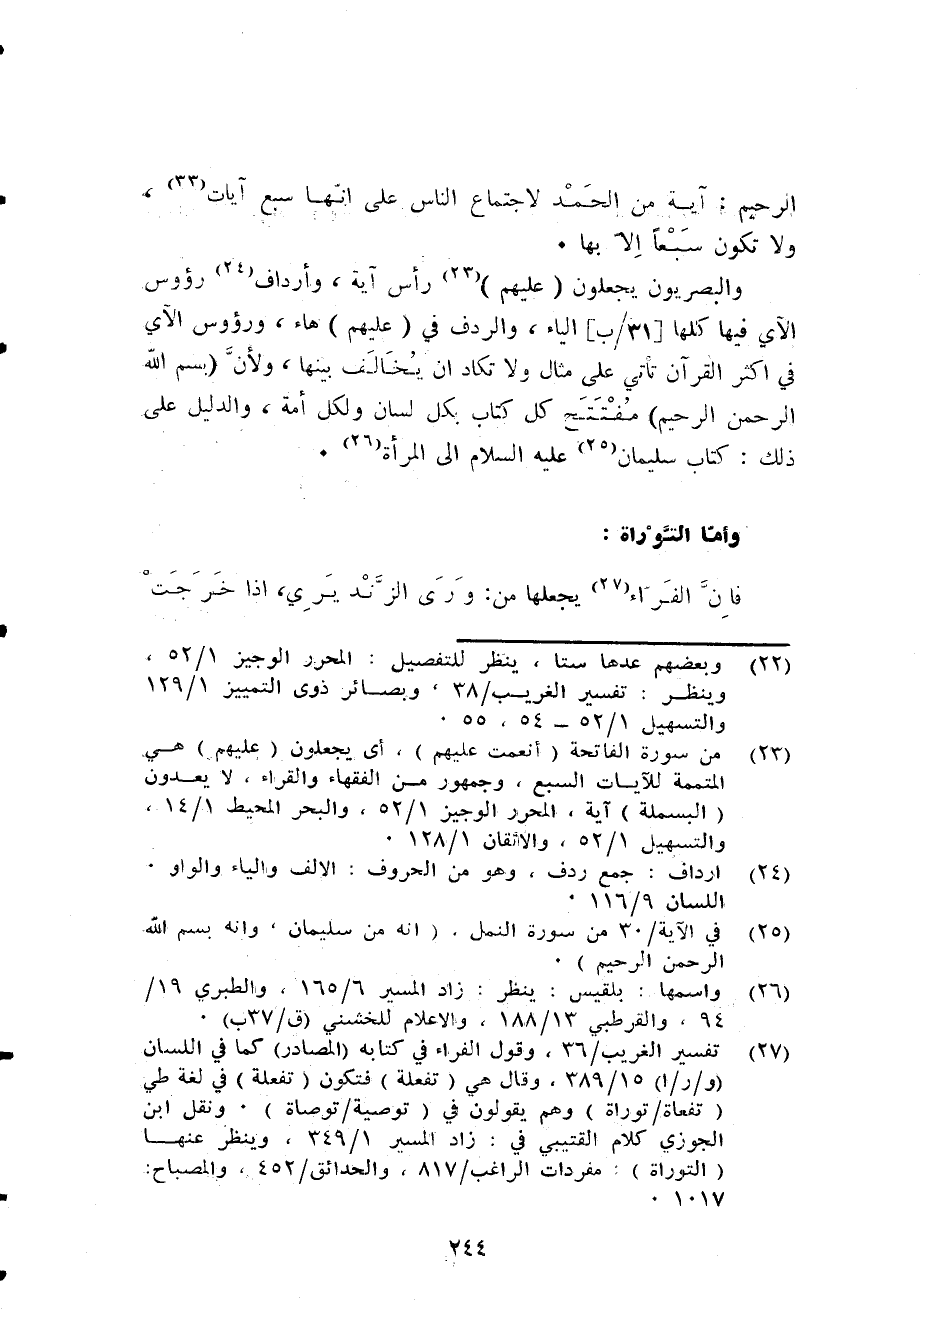 الرحيم : آيــة من الحَمْـد لاجتماع الناس على انّهـا سبع آيات(٣٣) ،
ولا تكون سَبْعاً إلاّ بها .
والبصريون يجعلون ( عليهم )(٢٣) رأس آية ، وأرداف(٢٤) رؤوس
الآي فيها كلها [٣١/ب] الياء ، والردف في ( عليهم ) هاء ، ورؤوس الآي
في اكثر القرآن تأتي على مثال ولا تكاد ان يُخَالَف بينها ، ولأنَّ (بسم الله
الرحمن الرحيم) مُفْتَتَح كل كتاب بكل لسان ولكل أمة ، والدليل على
ذلك : كتاب سليمان(٢٥) عليه السلام الى المرأة(٢٦) .
وأمّا التَّوْراة :
فإنَّ الفَرّاء(٢٧) يجعلها من: وَرَى الزَّنْد يَرِي، اذا خَرَجَتْ
(٢٢) وبعضهم عدها ستا ، ينظر للتفصيل : المحرر الوجيز ٥٢/١ ،
وينظـر : تفسير الغريـب/٣٨ ، وبصـائر ذوى التمييز ١٢٩/١
والتسهيل ٥٢/١ – ٥٤ ، ٥٥ .
(٢٣) من سورة الفاتحة ( أنعمت عليهم ) ، أى يجعلون ( عليهم ) هـي
المتممة للآيـات السبع ، وجمهور مـن الفقهاء والقراء ، لا يعـدون
( البسملة ) آية ، المحرر الوجيز ٥٢/١ ، والبحر المحيط ١٤/١ ،
والتسهيل ٥٢/١ ، والاتقان ١٢٨/١ .
(٢٤) ارداف : جمع ردف ، وهو من الحروف : الالف والياء والواو .
اللسان ١١٦/٩ .
(٢٥) في الآية/٣٠ من سورة النمل . ( انه من سليمان ، وانه بسم الله
الرحمن الرحيم ) .
(٢٦) واسمها : بلقيس : ينظر : زاد المسير ١٦٥/٦ ، والطبري ١٩/
٩٤ ، والقرطبي ١٨٨/١٣ ، والاعلام للخشني (ق/٣٧ب) .
(٢٧) تفسير الغريب/٣٦ ، وقول الفراء في كتابه (المصادر) كما في اللسان
(و/ر/ا) ٣٨٩/١٥ ، وقال هي ( تفعلة ) فتكون ( تفعلة ) في لغة طي
( تفعاة/توراة ) وهم يقولون في ( توصية/توصاة ) . ونقل ابن
الجوزي كلام القتيبي في : زاد المسير ٣٤٩/١ ، وينظر عنهــا
( التوراة ) : مفردات الراغب/٨١٧ ، والحدائق/٤٥٢ ، والمصباح:
١٠١٧ .
٢٤٤